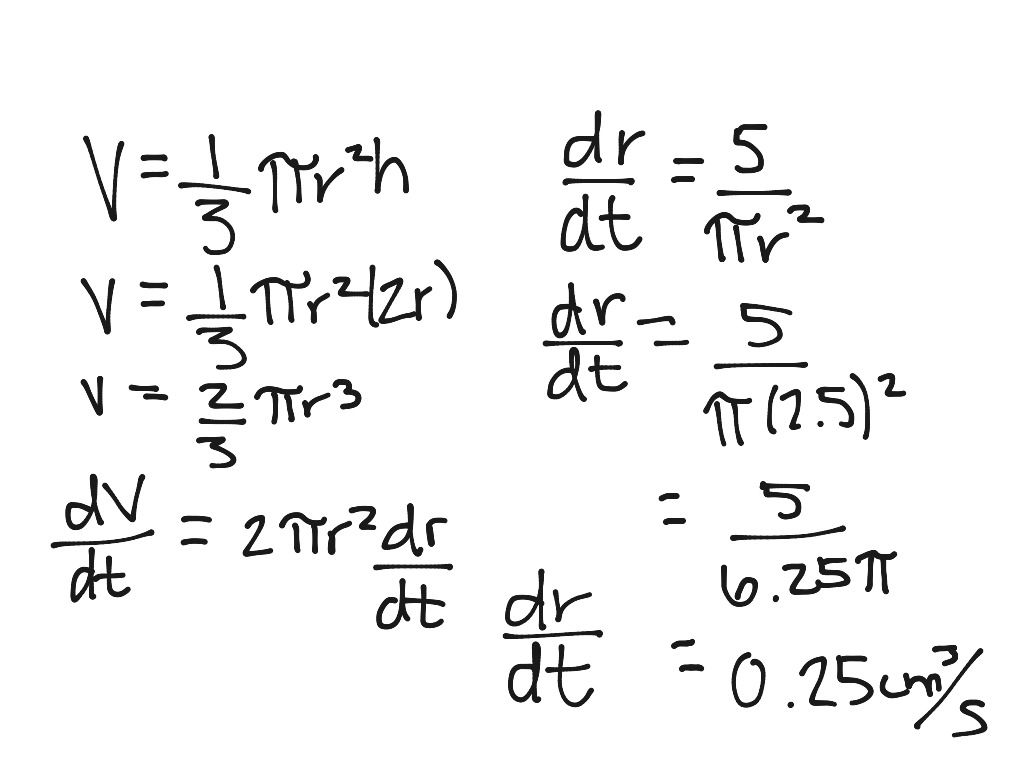 V = 1/3 πr²h
V = 1/3 πr²(2r)
V = 2/3 πr³
dV/dt = 2πr² dr/dt
dr/dt = 5/πr²
dr/dt = 5/π(2.5)²
= 5/6.25π
dr/dt = 0.25cm³/s